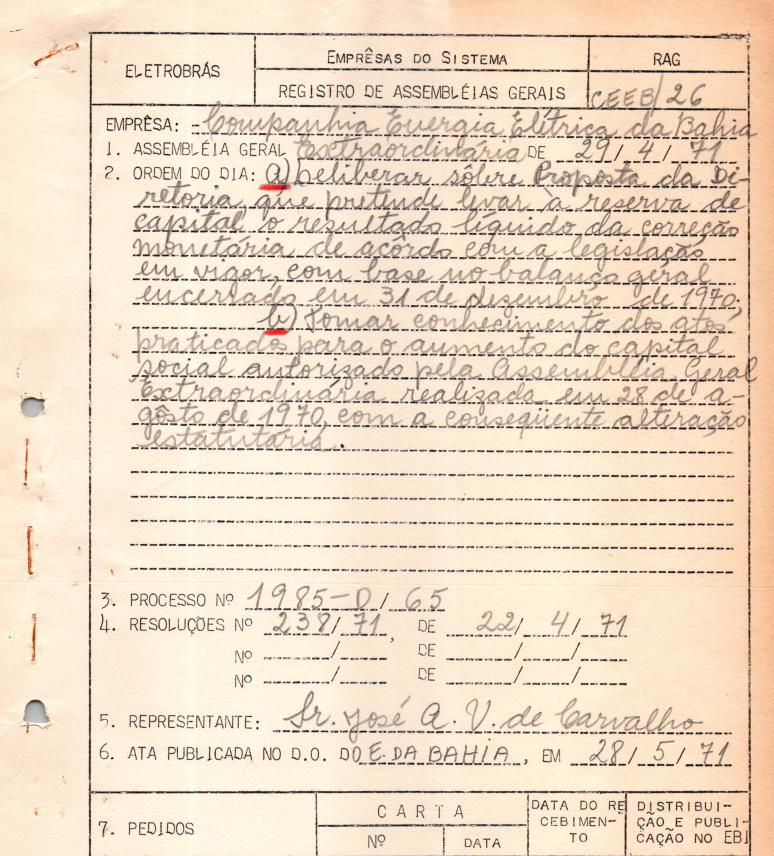 ELETROBRÁS
EMPRÊSAS DO SISTEMA
RAG
REGISTRO DE ASSEMBLÉIAS GERAIS
CEEB/26
EMPRÊSA: - Companhia Energia Elétrica da Bahia
1. ASSEMBLÉIA GERAL Extraordinária DE 29/4/71
2. ORDEM DO DIA: a) Deliberar sôbre Proposta da Di-
retoria, que pretende levar à reserva de
capital o resultado líquido da correção
monetária de acôrdo com a legislação
em vigor, com base no balanço geral
encerrado em 31 de dezembro de 1970;
b) Tomar conhecimento dos atos
praticados para o aumento do capital
social autorizado pela Assembléia Geral
Extraordinária realizada em 28 de a-
gôsto de 1970, com a conseqüente alteração
estatutária.
3. PROCESSO Nº 1985-D/65
4. RESOLUÇÕES Nº 238/71, DE 22/4/71
Nº / DE / /
Nº / DE / /
5. REPRESENTANTE: Sr. José A. V. de Carvalho
6. ATA PUBLICADA NO D.O. DO E. DA BAHIA, EM 28/5/71
7. PEDIDOS
CARTA
Nº
DATA
DATA DO RE
CEBIMEN-
TO
DISTRIBUI-
ÇÃO E PUBLI-
CAÇÃO NO EBI